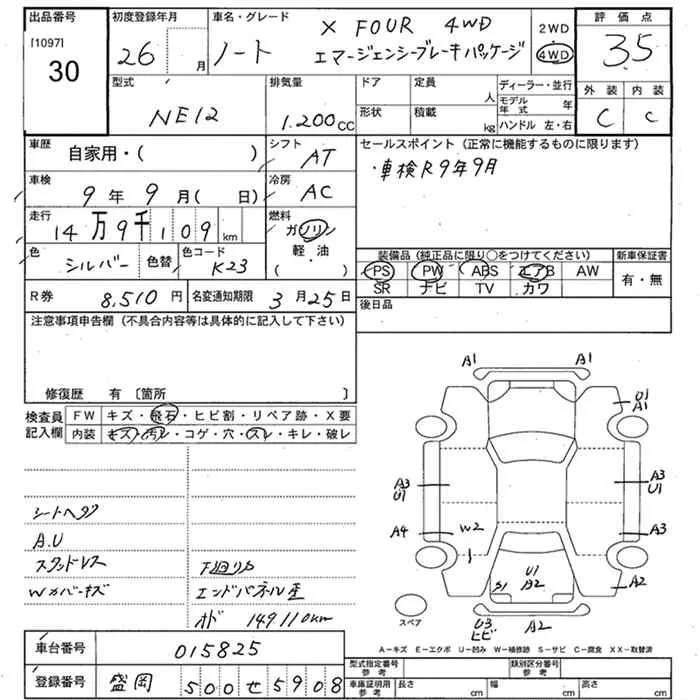 出品番号 [1097] 30
初度登録年月 26 月
車名・グレード ノート X FOUR 4WD エマージェンシーブレーキパッケージ
2WD 4WD
評価点 3.5
外装 C 内装 C
型式 NE12
排気量 1.200cc
ドア 定員 人
形状 積載 kg
ディーラー・並行
モデル年式 年
ハンドル 左・右
車歴 自家用・( )
シフト AT
車検 9年9月( 日)
冷房 AC
走行 14万9千109km
燃料 ガソリン 軽・油 ( )
色 シルバー 色替 色コード K23
R券 8,510円 名変通知期限 3月25日
セールスポイント(正常に機能するものに限ります)
・車検R9年9月
装備品(純正品に限り○をつけてください) 新車保証書
PS PW ABS エアB AW 有・無
SR ナビ TV カワ
後日品
注意事項申告欄(不具合内容等は具体的に記入して下さい)
修復歴 有〔箇所 〕
検査員記入欄
FW キズ・飛石・ヒビ割・リペア跡・X要
内装 キズ・汚レ・コゲ・穴・スレ・キレ・破レ
シートヘタリ
A.U
スタッドレス 下廻りサ
Wカバーキズ エンドパネル歪
オド 149110km
A1 A1
U1
A1
A3
U1
A3
U1
A4 W2 A3
A2
S1 U1
B2
U3
ヒビ
A2
スペア
A-キズ E-エクボ U-凹み W-補修跡 S-サビ C-腐食 XX-取替済
車台番号 015825
登録番号 盛岡 500せ5908
型式指定番号 参考 類別区分番号 参考
車庫証明用 参考 長さ cm 幅 cm 高さ cm